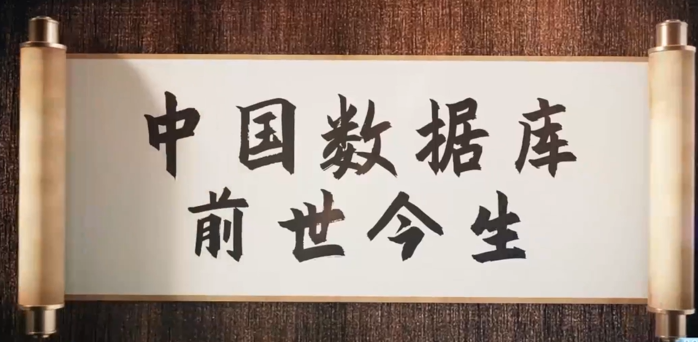 中国数据库
前世今生